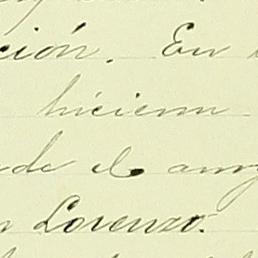 ción. En
hicieron
de el arroy
Lorenzo.